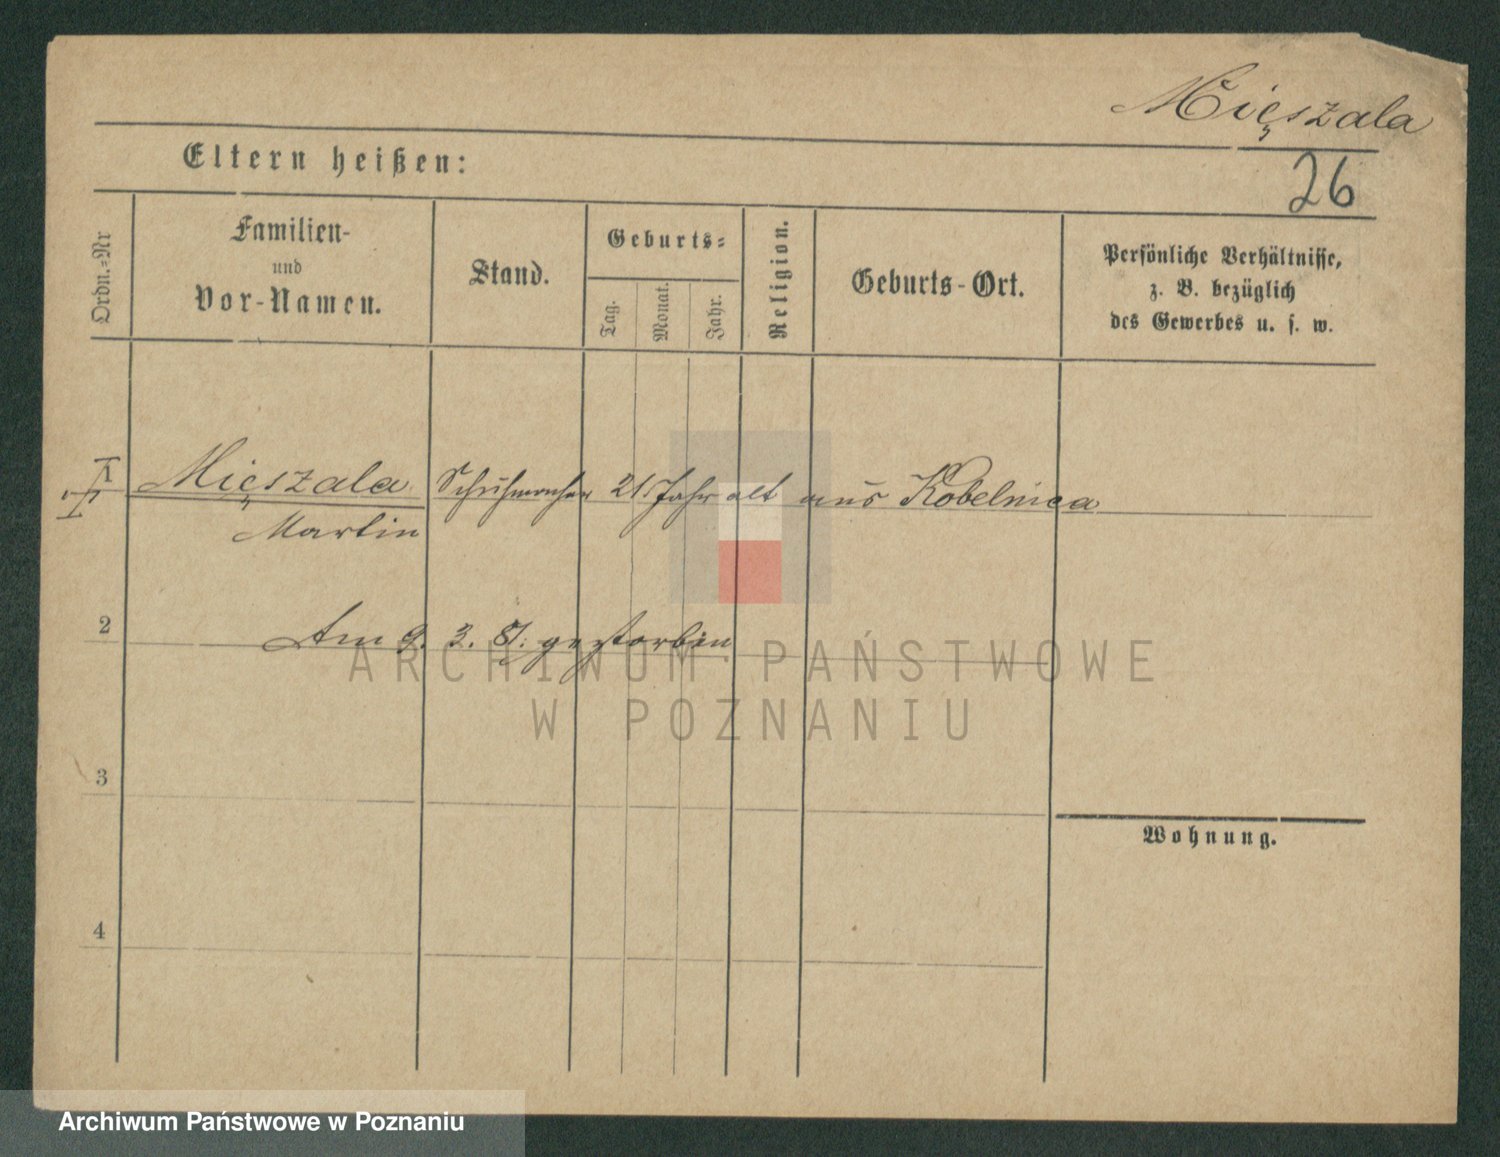 Mięszala
26
Eltern heißen:
Ordn.=Nr
Familien-
und
Vor-Namen.
Stand.
Geburts=
Tag.
Monat.
Jahr.
Religion.
Geburts-Ort.
Persönliche Verhältnisse,
z. B. bezüglich
des Gewerbes u. s. w.
1 Mięszala Schuhmacher 21 Jahr alt aus Kobelnica
Martin
2 Am 9. 3. gestorben
ARCHIWUM PAŃSTWOWE
W POZNANIU
3
Wohnung.
4
Archiwum Państwowe w Poznaniu